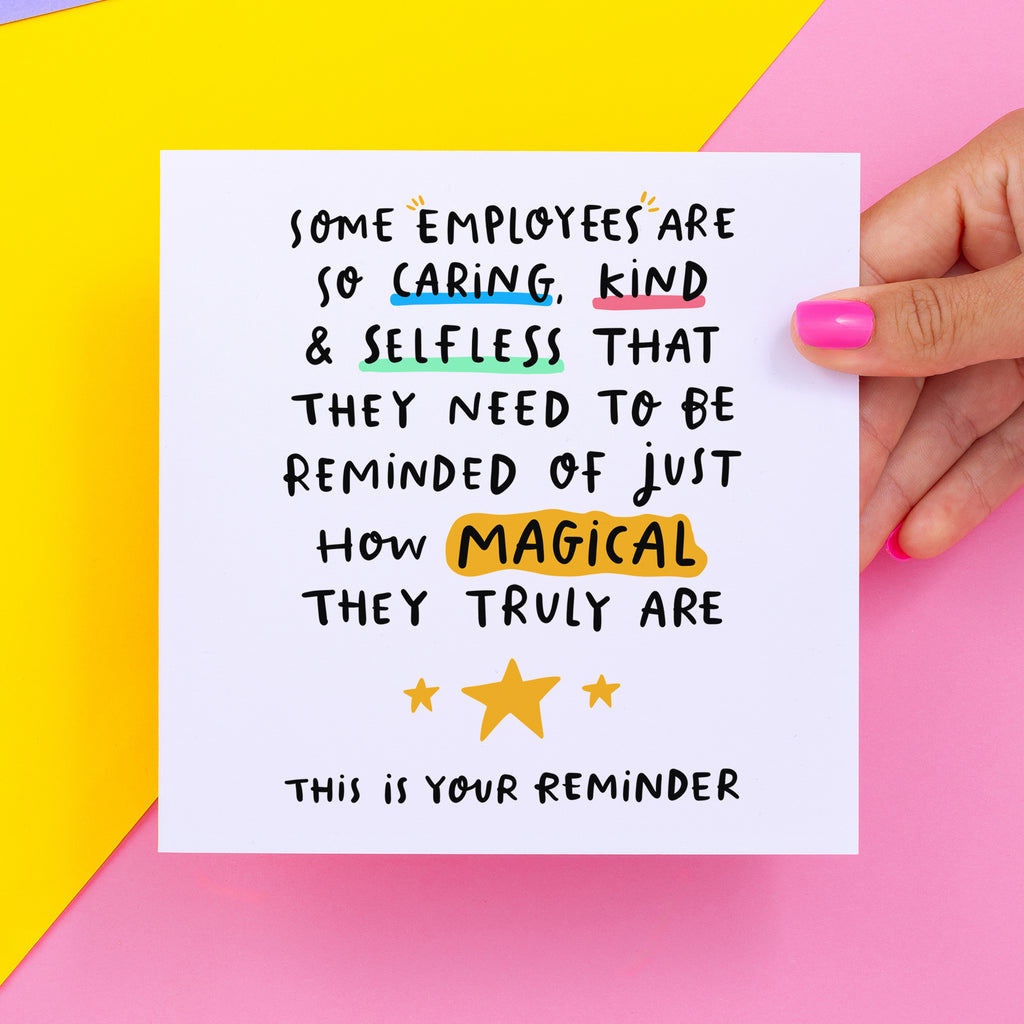 SOME "EMPLOYEES" ARE
SO CARING, KIND
& SELFLESS THAT
THEY NEED TO BE
REMINDED OF JUST
HOW MAGICAL
THEY TRULY ARE
THIS IS YOUR REMINDER